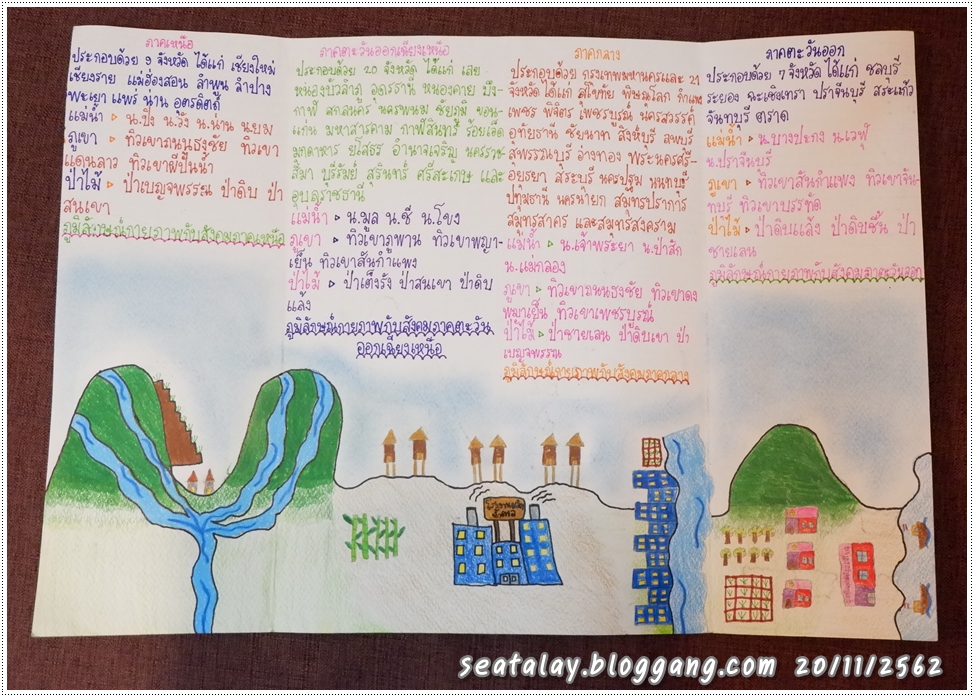 ภาคเหนือ
ประกอบด้วย 9 จังหวัด ได้แก่ เชียงใหม่
เชียงราย แม่ฮ่องสอน ลำพูน ลำปาง
พะเยา แพร่ น่าน อุตรดิตถ์
แม่น้ำ น.ปิง น.วัง น.น่าน น.ยม
ภูเขา ทิวเขาถนนธงชัย ทิวเขา
แดนลาว ทิวเขาผีปันน้ำ
ป่าไม้ ป่าเบญจพรรณ ป่าดิบ ป่า
สนเขา
ภูมิลักษณ์กายภาพกับสังคมภาคเหนือ
ภาคตะวันออกเฉียงเหนือ
ประกอบด้วย 20 จังหวัด ได้แก่ เลย
หนองบัวลำภู อุดรธานี หนองคาย บึง-
กาฬ สกลนคร นครพนม ชัยภูมิ ขอน-
แก่น มหาสารคาม กาฬสินธุ์ ร้อยเอ็ด
มุกดาหาร ยโสธร อำนาจเจริญ นครราช-
สีมา บุรีรัมย์ สุรินทร์ ศรีสะเกษ และ
อุบลราชธานี
แม่น้ำ น.มูล น.ชี น.โขง
ภูเขา ทิวเขาภูพาน ทิวเขาพญา-
เย็น ทิวเขาสันกำแพง
ป่าไม้ ป่าเต็งรัง ป่าสนเขา ป่าดิบ
แล้ง
ภูมิลักษณ์กายภาพกับสังคมภาคตะวัน
ออกเฉียงเหนือ
ภาคกลาง
ประกอบด้วย กรุงเทพมหานครและ 21
จังหวัด ได้แก่ สุโขทัย พิษณุโลก กำแพง
เพชร พิจิตร เพชรบูรณ์ นครสวรรค์
อุทัยธานี ชัยนาท สิงห์บุรี ลพบุรี
สุพรรณบุรี อ่างทอง พระนครศรี-
อยุธยา สระบุรี นครปฐม นนทบุรี
ปทุมธานี นครนายก สมุทรปราการ
สมุทรสาคร และสมุทรสงคราม
แม่น้ำ น.เจ้าพระยา น.ป่าสัก
น.แม่กลอง
ภูเขา ทิวเขาถนนธงชัย ทิวเขาดง
พญาเย็น ทิวเขาเพชรบูรณ์
ป่าไม้ ป่าชายเลน ป่าดิบเขา ป่า
เบญจพรรณ
ภูมิลักษณ์กายภาพกับสังคมภาคกลาง
ภาคตะวันออก
ประกอบด้วย 7 จังหวัด ได้แก่ ชลบุรี
ระยอง ฉะเชิงเทรา ปราจีนบุรี สระแก้ว
จันทบุรี ตราด
แม่น้ำ น.บางปะกง น.เวฬุ
น.ปราจีนบุรี
ภูเขา ทิวเขาสันกำแพง ทิวเขาจัน-
ทบุรี ทิวเขาบรรทัด
ป่าไม้ ป่าดิบแล้ง ป่าดิบชื้น ป่า
ชายเลน
ภูมิลักษณ์กายภาพกับสังคมภาคตะวันออก
seatalay.bloggang.com 20/11/2562